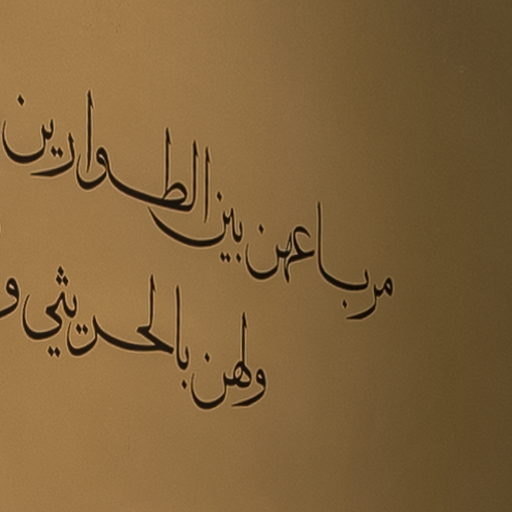 مرباعهن بين الطوارين
ولهن بالحريثي و